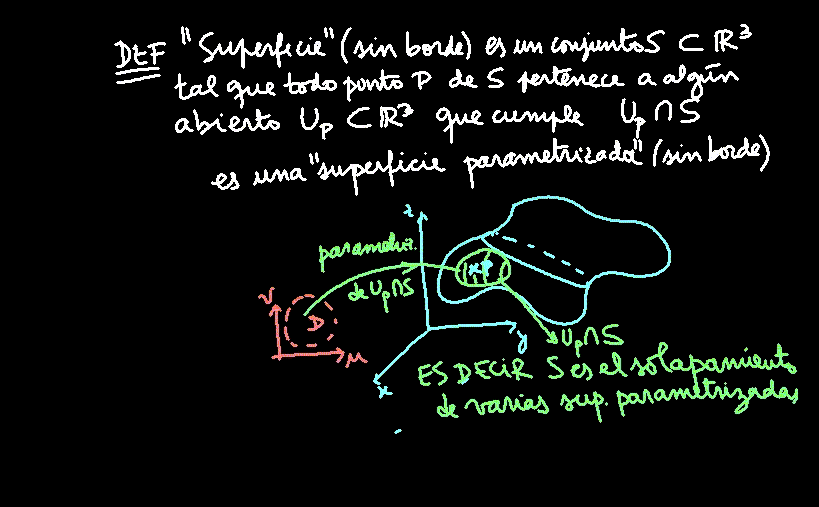 DEF "Superficie" (sin borde) es un conjunto S ⊂ ℝ³
tal que todo punto P de S pertenece a algún
abierto Uₚ ⊂ ℝ³ que cumple Uₚ ∩ S
es una "superficie parametrizada" (sin borde)
z
parametriz.
de Uₚ∩S
xP
v
D
u
y
x
Uₚ∩S
ES DECIR S es el solapamiento
de varias sup. parametrizadas